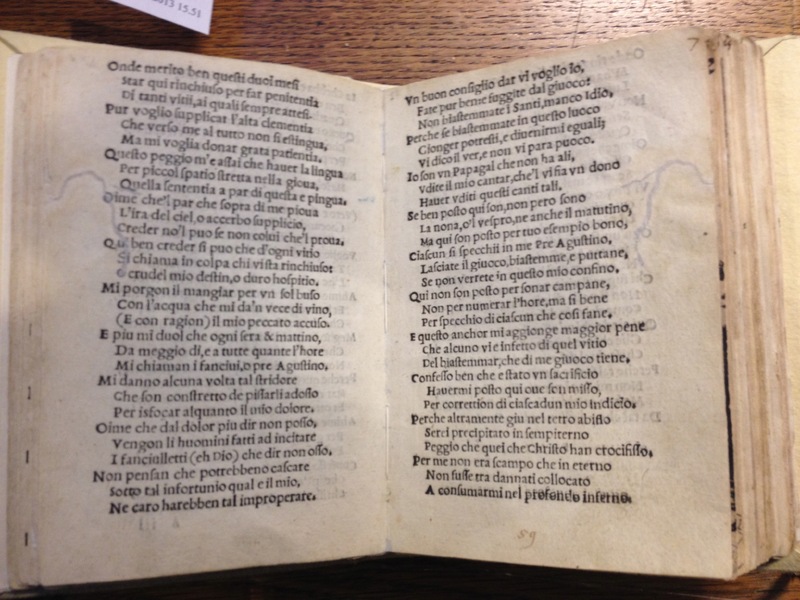 2013 15.51
Onde merito ben questi duoi mesi
Star qui rinchiuso per far penitentia
Di tanti vitii, ai quali sempre attesi.
Pur voglio supplicar l'alta clementia
Che verso me al tutto non si estingua,
Ma mi voglia donar grata patientia.
Questo peggio m'e assai che hauer la lingua
Per piccol spatio stretta nella gioua,
Quella sententia a par di questa e pingua.
Oime che'l par che sopra di me pioua
L'ira del ciel, o accerbo supplicio,
Creder no'l puo se non colui che'l proua.
Qui ben creder si puo che d'ogni vitio
Si chiama in colpa chi vi sta rinchiuso:
O crudel mio destin, o duro hospitio.
Mi porgon il mangiar per vn sol buso
Con l'acqua che mi da'n vece di vino,
(E con ragion) il mio peccato accuso.
E piu mi duol che ogni sera & mattino,
Da meggio di, e a tutte quante l'hore
Mi chiaman i fanciui, o pre Agustino.
Mi danno alcuna volta tal stridore
Che son constretto de pissarli adosso
Per isfocar alquanto il mio dolore.
Oime che dal dolor piu dir non posso,
Vengon li huomini fatti ad incitare
I fanciulletti (eh Dio) che dir non osso.
Non pensan che potrebbeno cascare
Sotto tal infortunio qual e il mio,
Ne caro harebben tal improperare.
Vn buon consiglio dar vi voglio io,
Fate pur bene suggite dal giuoco:
Non biastemmate i Santi, manco Idio,
Perche se biastemmate in questo luoco
Gionger potresti, e diuenirmi eguali;
Vi dico il ver, e non vi para puoco.
Io son vn Papagal che non ha ali,
Vdite il mio cantar, che'l vi fia vn dono
Hauer vditi questi canti tali.
Se ben posto qui son, non pero sono
La nona, o'l vespro, ne anche il matutino,
Ma qui son posto per tuo esempio bono,
Ciascun si specchii in me Pre Agustino,
Lasciate il giuoco, biastemme, e puttane,
Se non verrete in questo mio confino.
Qui non son posto per sonar campane,
Non per numerar l'hore, ma si bene
Per specchio di ciascun che cosi fane.
E questo anchor mi aggionge maggior pene
Che alcuno vi e infetto di quel vitio
Del biastemmar, che di me giuoco tiene.
Confesso ben che e stato vn sacrificio
Hauermi posto qui oue son misso,
Per correttion di ciascadun mio indicio.
Perche altramente giu nel tetro abisso
Serei precipitato in sempiterno
Peggio che quei che Christo han crocifisso.
Per me non era scampo che in eterno
Non fusse tra dannati collocato
A consumarmi nel profondo inferno.
59